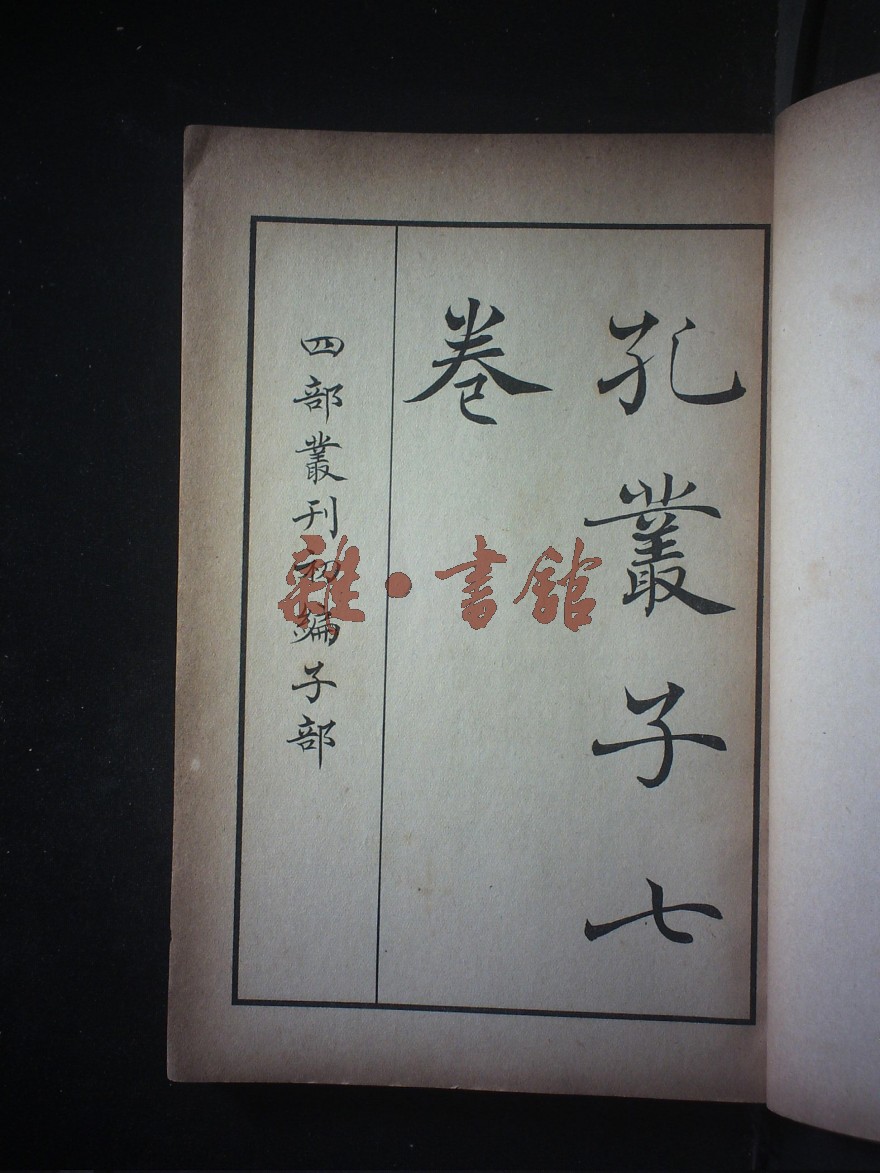 孔叢子七
卷
四部叢刊初編子部
雜·書館